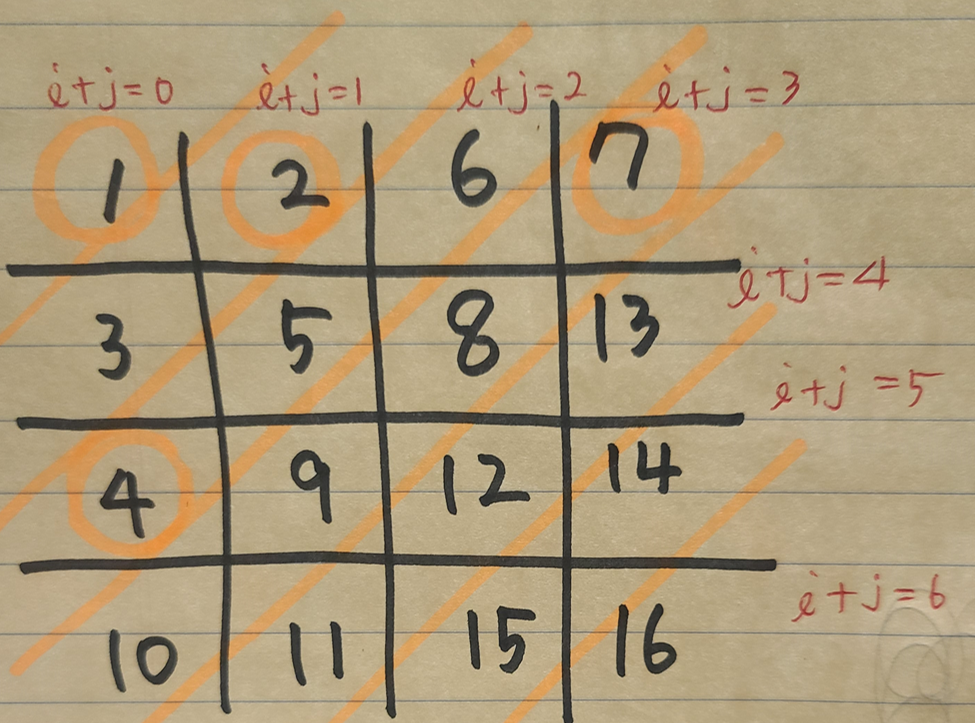 i+j=0 i+j=1 i+j=2 i+j=3
1 2 6 7
i+j=4
3 5 8 13
i+j=5
4 9 12 14
i+j=6
10 11 15 16